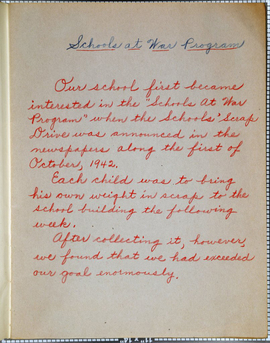 Schools at War Program
Our school first became
interested in the "Schools At War
Program" when the Schools' Scrap
Drive was announced in the
newspapers along the first of
October, 1942.
Each child was to bring
his own weight in scrap to the
school building the following
week.
After collecting it, however,
we found that we had exceeded
our goal enormously.
11" x 14"